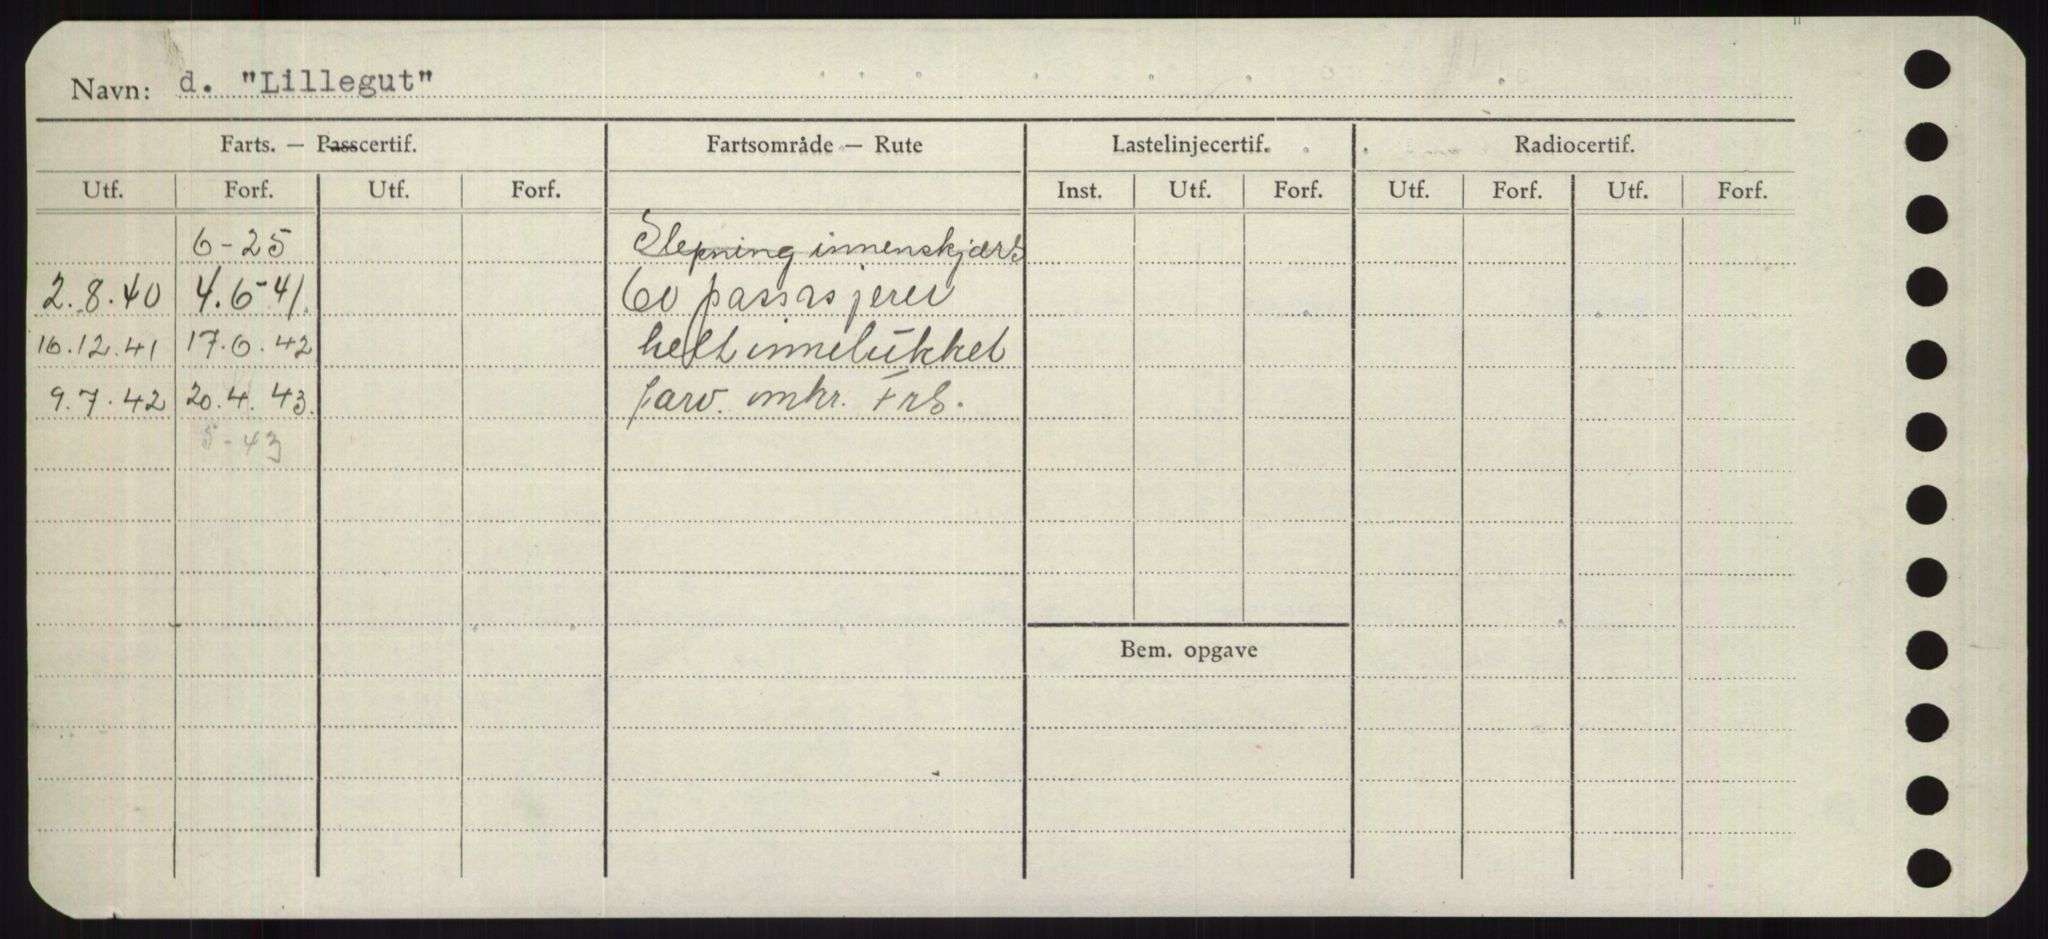 Navn: d. "Lillegut"
Farts. — Passcertif. Fartsområde — Rute Lastelinjecertif. Radiocertif.
Utf. Forf. Utf. Forf. Inst. Utf. Forf. Utf. Forf. Utf. Forf.
6-25 Slepning innenskjærs
2.8.40 4.6-41. 60 passasjerer
16.12.41 17.6.42 helt innelukket
9.7.42 20.4.43. farv. omkr. Frs.
5-43
Bem. opgave